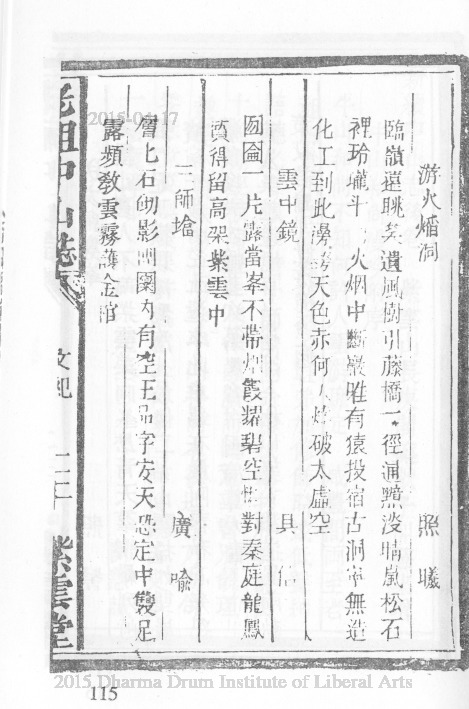 游火熖洞 照曦
臨嶺遠眺矣遺風樹引藤橋一徑通黯淡晴嵐松石
裡玲瓏斗 火烟中斷巖唯有猿投宿古洞寧無造
化工到此 天色赤何人 破太虛空
雲中鏡 具信
囫圇一片露當峯不帶烟霞耀碧空 對秦庭龍鳳
質得留高架紫雲中
三師塔 廣喻
層七石 影 圍內有空王品字安天恐定中雙足
露頻敎雲霧護金棺
老祖中山誌
文紀
二十
紫雲堂
2015-04-17
2015 Dharma Drum Institute of Liberal Arts
115